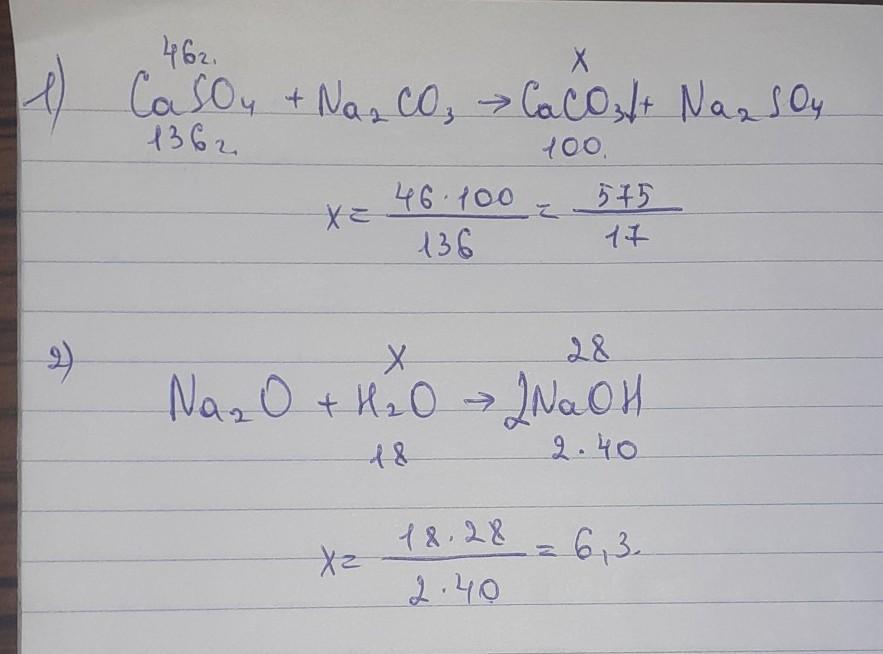 46г.
x
1) CaSO₄ + Na₂CO₃ → CaCO₃↓ + Na₂SO₄
136г.
100.
x = 46·100 / 136 = 575 / 17
x
28
2) Na₂O + H₂O → 2NaOH
18
2·40
x = 18·28 / 2·40 = 6,3.